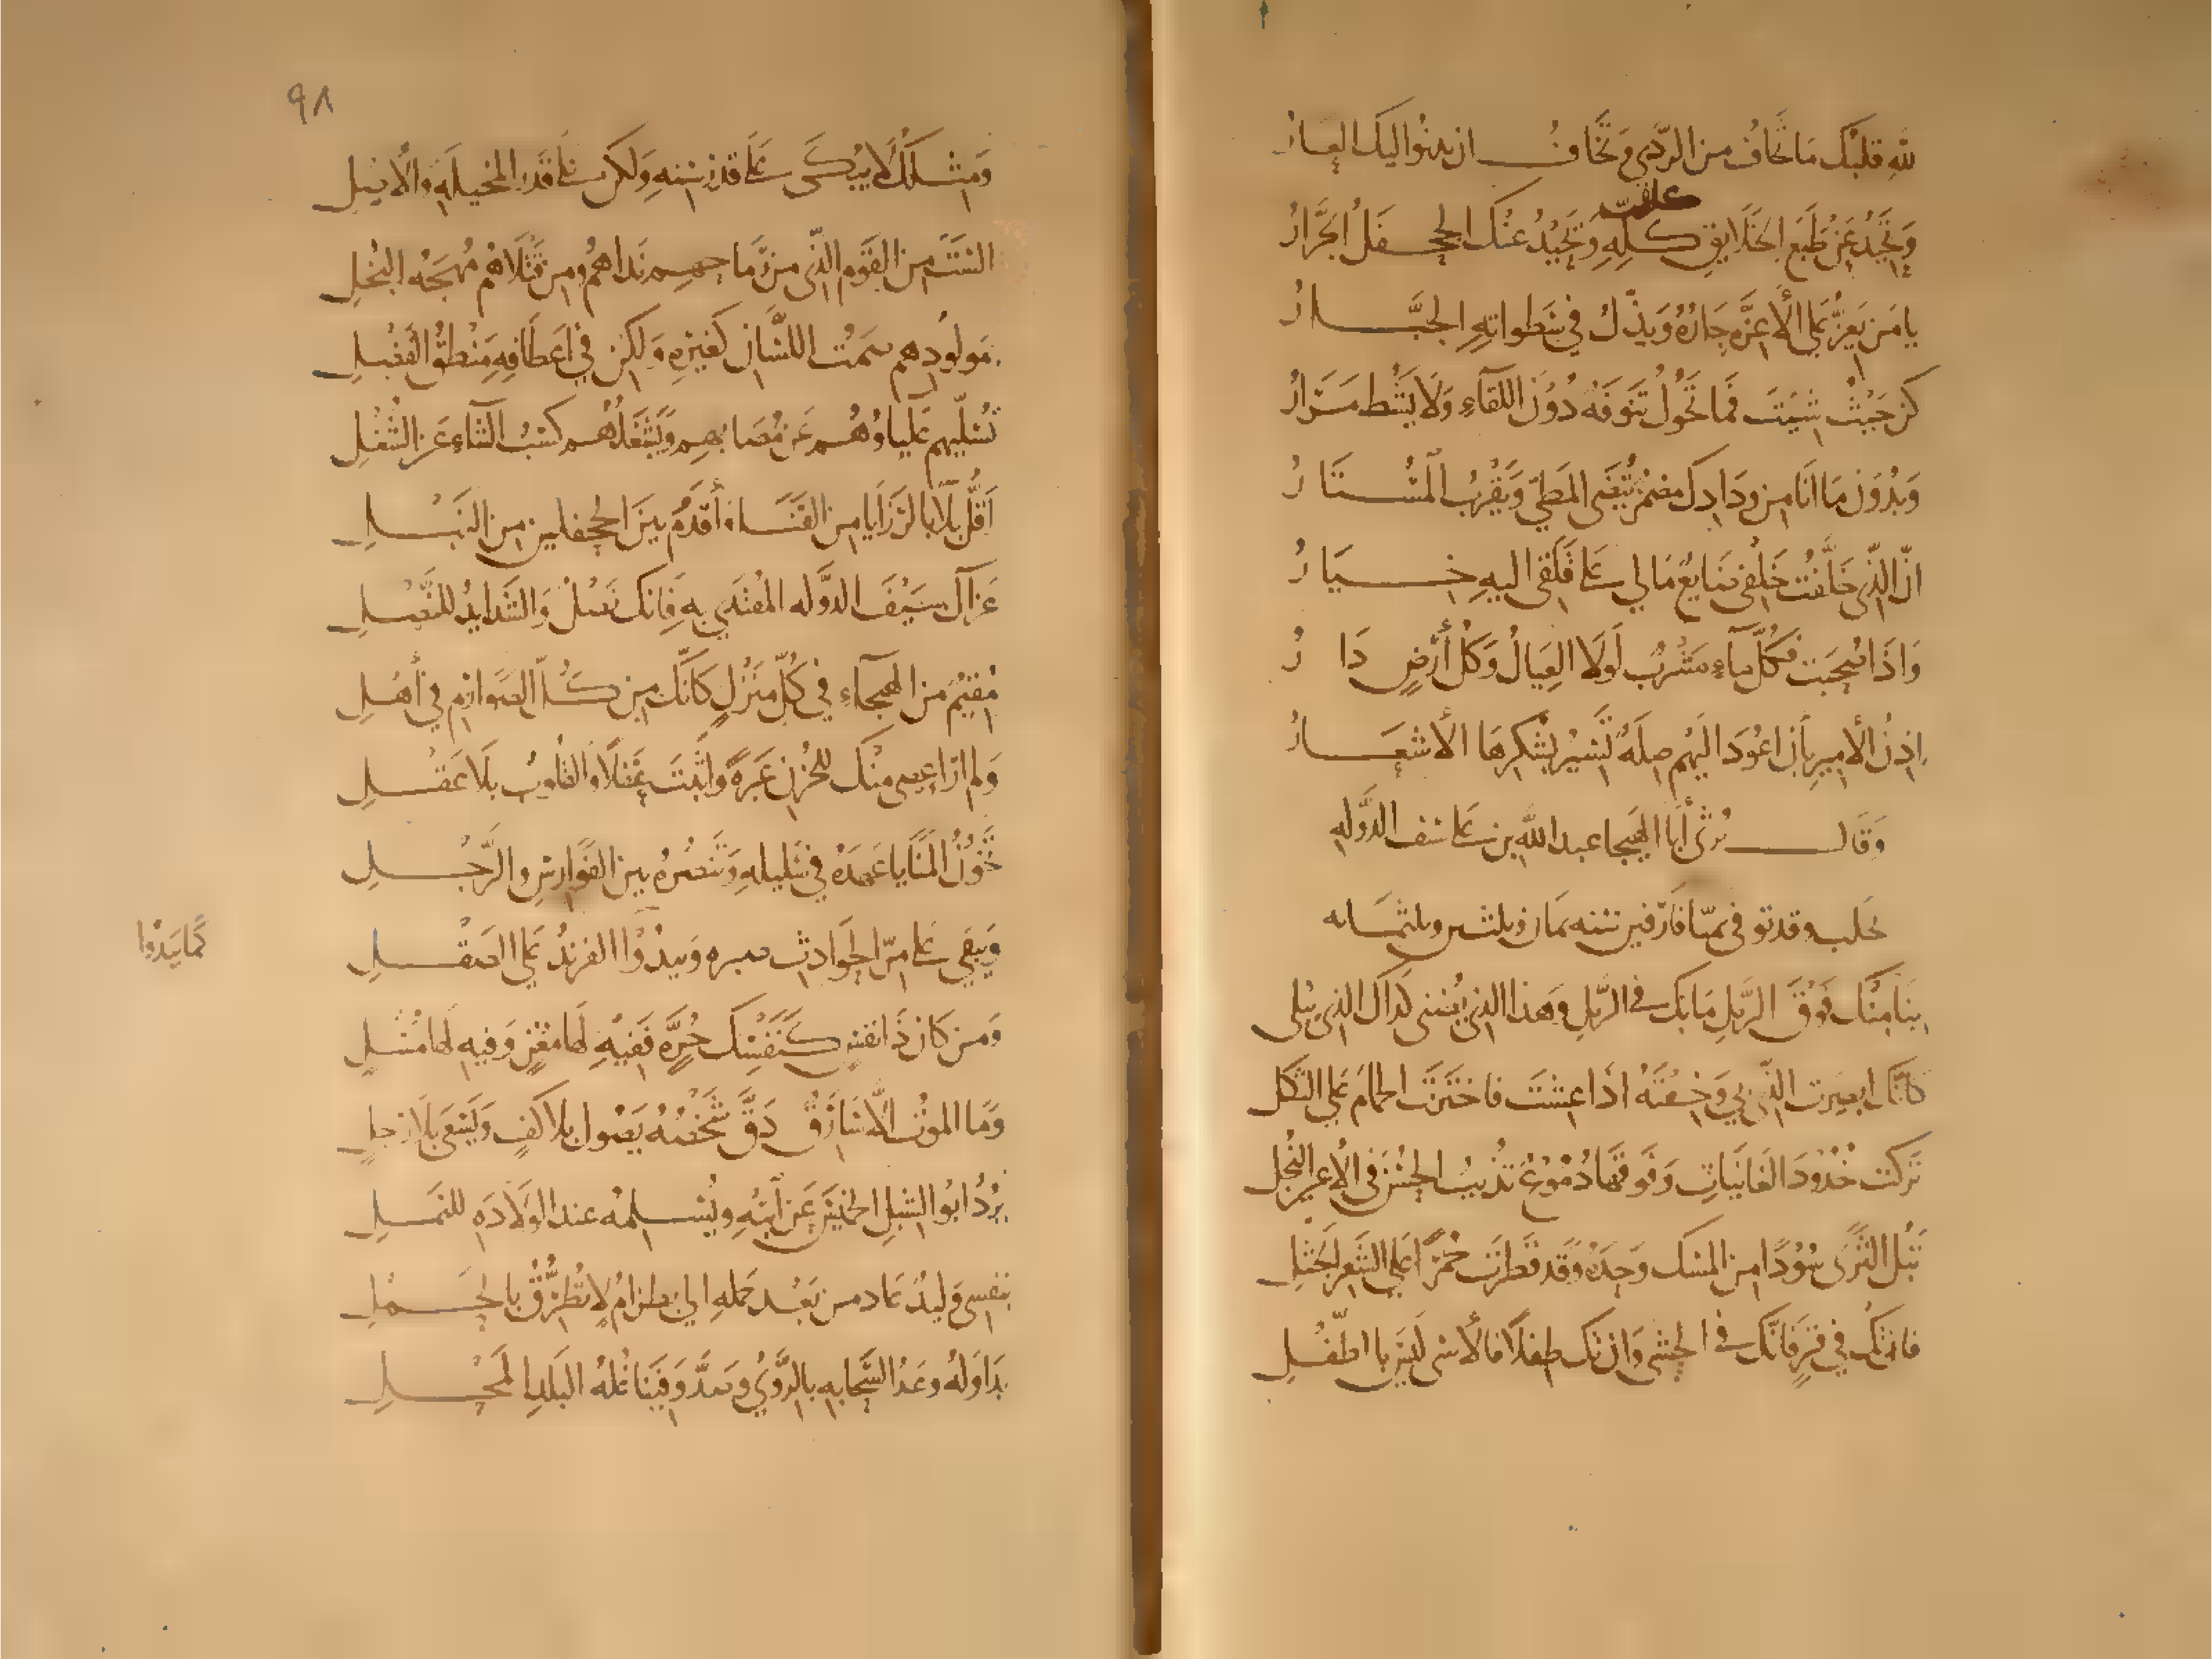 لله قلبك مَا تخافُ من الرّدى وَتخَافُ ان يدنوا اليك العارُ
علقت
وَتحَيْدُ عَن طَبَعِ الخَلَايقِ كلِهِ وَيَحَيْدُ عنْك الجحفَلُ الجَرَّارُ
يا مَن يَعزُّ على الأعِزَّه جَارُهُ وَيذلُ في سَطواتهِ الجبَّارُ
كن حَيْثُ شيْتَ فما تَحُولُ تنوفَهٌ دُوْنَ اللقاءِ وَلَا يَشُط مَزَارُ
وَبدُوْن مَا انَا من وِدَادِك مضمرٌ يُنضَى المَطيّ وَيَقْرُبُ المُسْتَارُ
انّ الذّي خَلَّفْتُ خَلْفي ضَايعٌ مَالي عَلى قَلَقى اليهِ خيَارُ
وَاذَا صُحِبَت فكلّ مآءٍ مَشْرَبٌ لَولَا العِيَالُ وَكل أَرْضٍ دَارُ
اِذنُ الأميرِ بأن اعُوْدَ اليَهم صِلَهٌ تَسيْرُ بشكرِهَا الأشعَارُ
وَقَال يُرثى أبا الهيجا عبد الله بن على سيف الدَّوله
بحلب وقد توفى بميّافارقين سنه ثمان وثلثين وثلثمايه
بِنَا مِنكَ فَوْقَ الرَّملِ مَا بك في الرّملِ وَهذا الذي يُضنى كَذاك الذي يُبلى
كانّكَ ابصَرت الذّي بي وَخِفتَهُ اذَا عِشتَ فاختَرتَ الحمامَ عَلى الثكل
تَركت خُدُوْدَ الغَانَيَاتِ وَفَوقهَا دُمُوْعٌ تذُيبُ الحُسْنَ في الأعين النُّجل
تَبُل الثَّرَى سُوْدًا من المسْك وَحدَهُ وَقد قطرَت حُمرًا على الشَعرِ الجَثلِ
فان تكُ في قبرٍ فانَّك في الحشى وَان تك طفلًا فالأسى لَيْسَ بالطّفلِ
٩٨
وَمثلكَ لَا يُبكَى عَلى قدْرِ سنهِ وَلكن على قَدْرِ المخيلَهِ وَالأصْلِ
السْتَ من القَوم الذّي من رمَاحِهم نَداهمُ ومن قَتلَاهم مُهجَهُ البُخلِ
بمَولودِهم صَمتُ اللسَّان كغيرِهِ وَلكن في اعْطَافِهِ مَنْطقُ الفَضْلِ
تُسَلّيهم عَليَاوُهُم عَن مُصَابهم وَيَشْغَلُهُم كسْبُ الثناءِ عَن الشُّغْلِ
أقَلُّ بلَآءً بالرَزَايا من القَنَا وأَقدَمُ بيْنَ الجحفلين من النَبْلِ
عَزآك سَيْفَ الدَّوله المقتَدَى بهِ فَانك نَصْلٌ وَالشَدايدُ للنَّصْلِ
مُقيْمٌ من الهيجآءِ في كُلّ منْزلٍ كانّك من كُلّ الصَوارمِ في أهْلِ
وَلم ارَ اعصى منْك للحُزْنِ عَبرَهً واثبَتَ عَقلًا والقلُوبُ بلَا عَقْلِ
تَخُوْنُ المَنَايا عَهْدَهُ في سَليلهِ وَتَنصُرُهُ بين الفَوَارِسِ والرَّجْلِ
وَيَبقى عَلى مرّ الحَوَادِثِ صبره وَيبدُوا الفرندُ على الصَقْلِ
كَما يَبدُوا
وَمَن كَان ذَا نفسٍ كنَفْسِكَ حُرَّهٍ فَفيْهِ لهَا مُغنٍ وَفيهِ لهَا مُسْلِ
وَمَا الموْتُ الّا سَارقٌ دَقَّ شَخصُهُ يَصُول بلا كفٍ وَيَسْعَى بلا رجلِ
يَرُدُ ابُو الشبلِ الخميْسَ عَن ابنهِ ويُسْلمهُ عند الوِلَادَهِ للنَمْلِ
بنفسى وَليْدٌ عَاد من بَعْد حَملهِ الى بطن امٍ لا تُطَرِّقُ بالحَمْلِ
بَدَا وَلَهُ وعْدُ السَّحابهِ بالرَّوَي وصَدَّ وَفيْنَا غُلهُ البَلَدِ المَحْلِ